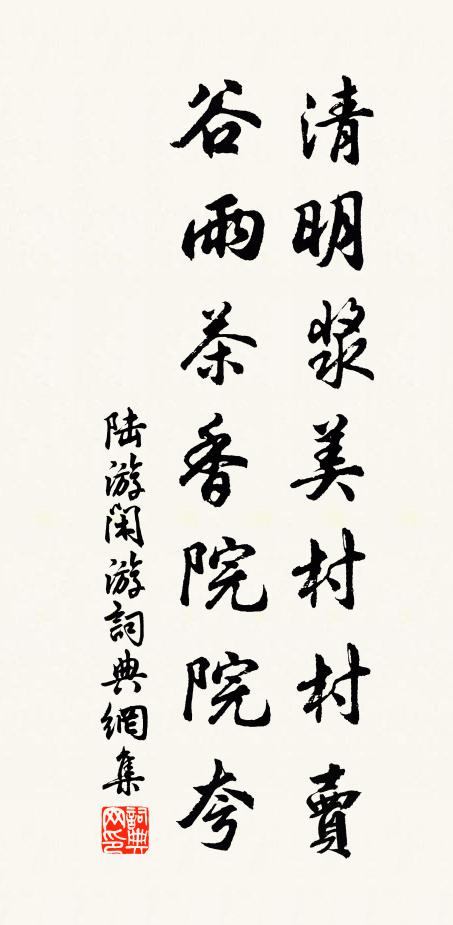 清明漿美村村賣
谷雨茶香院院夸
陆游閑游詞典網集
詞典网印